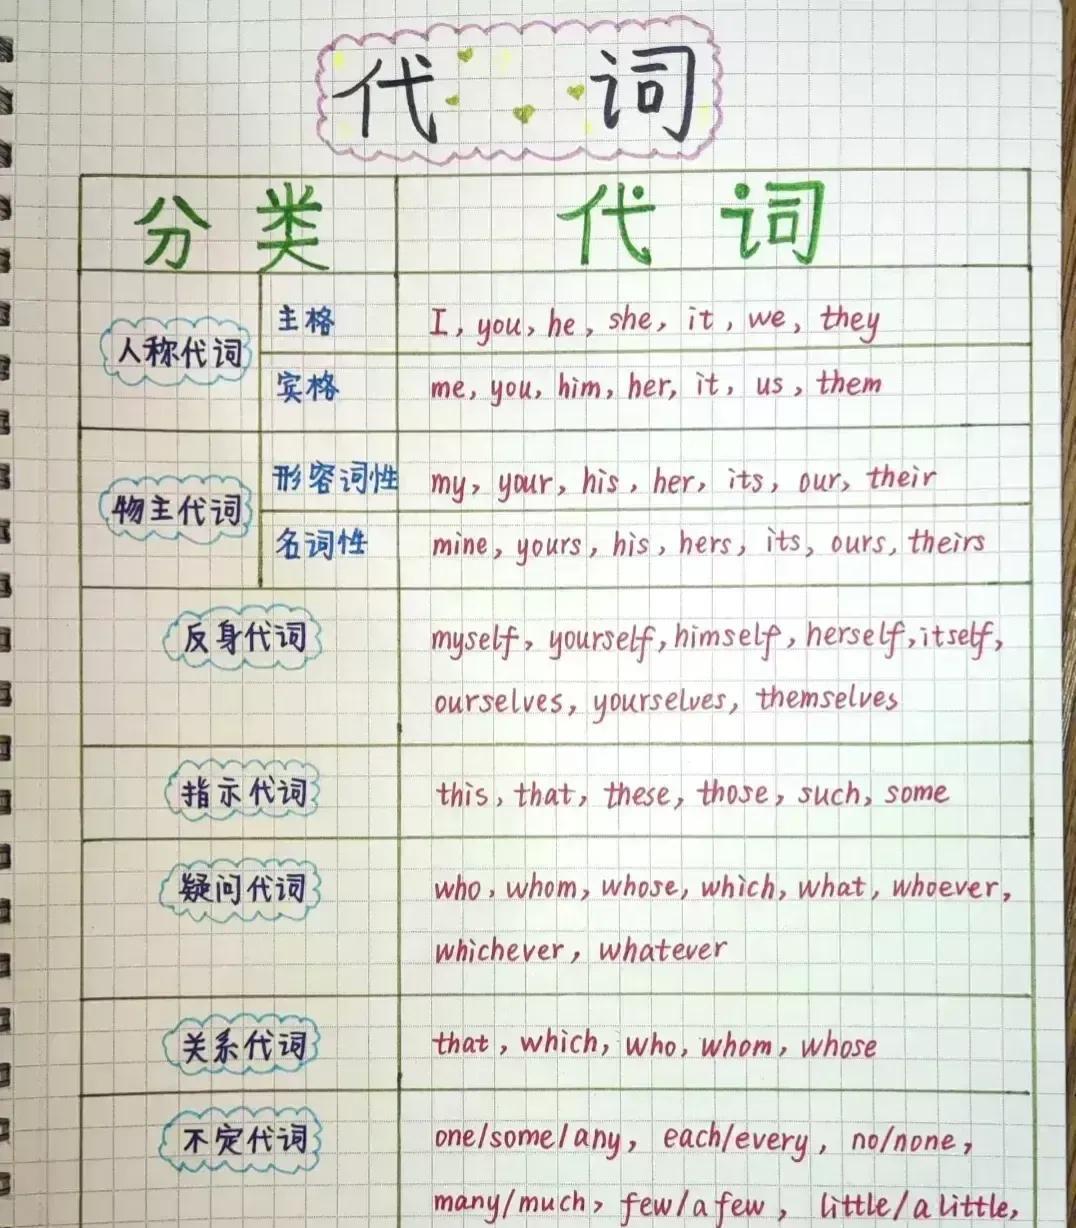 代词
分类 代词
人称代词 主格 I, you, he, she, it, we, they
宾格 me, you, him, her, it, us, them
物主代词 形容词性 my, your, his, her, its, our, their
名词性 mine, yours, his, hers, its, ours, theirs
反身代词 myself, yourself, himself, herself, itself,
ourselves, yourselves, themselves
指示代词 this, that, these, those, such, some
疑问代词 who, whom, whose, which, what, whoever,
whichever, whatever
关系代词 that, which, who, whom, whose
不定代词 one/some/any, each/every, no/none,
many/much, few/a few, little/a little,